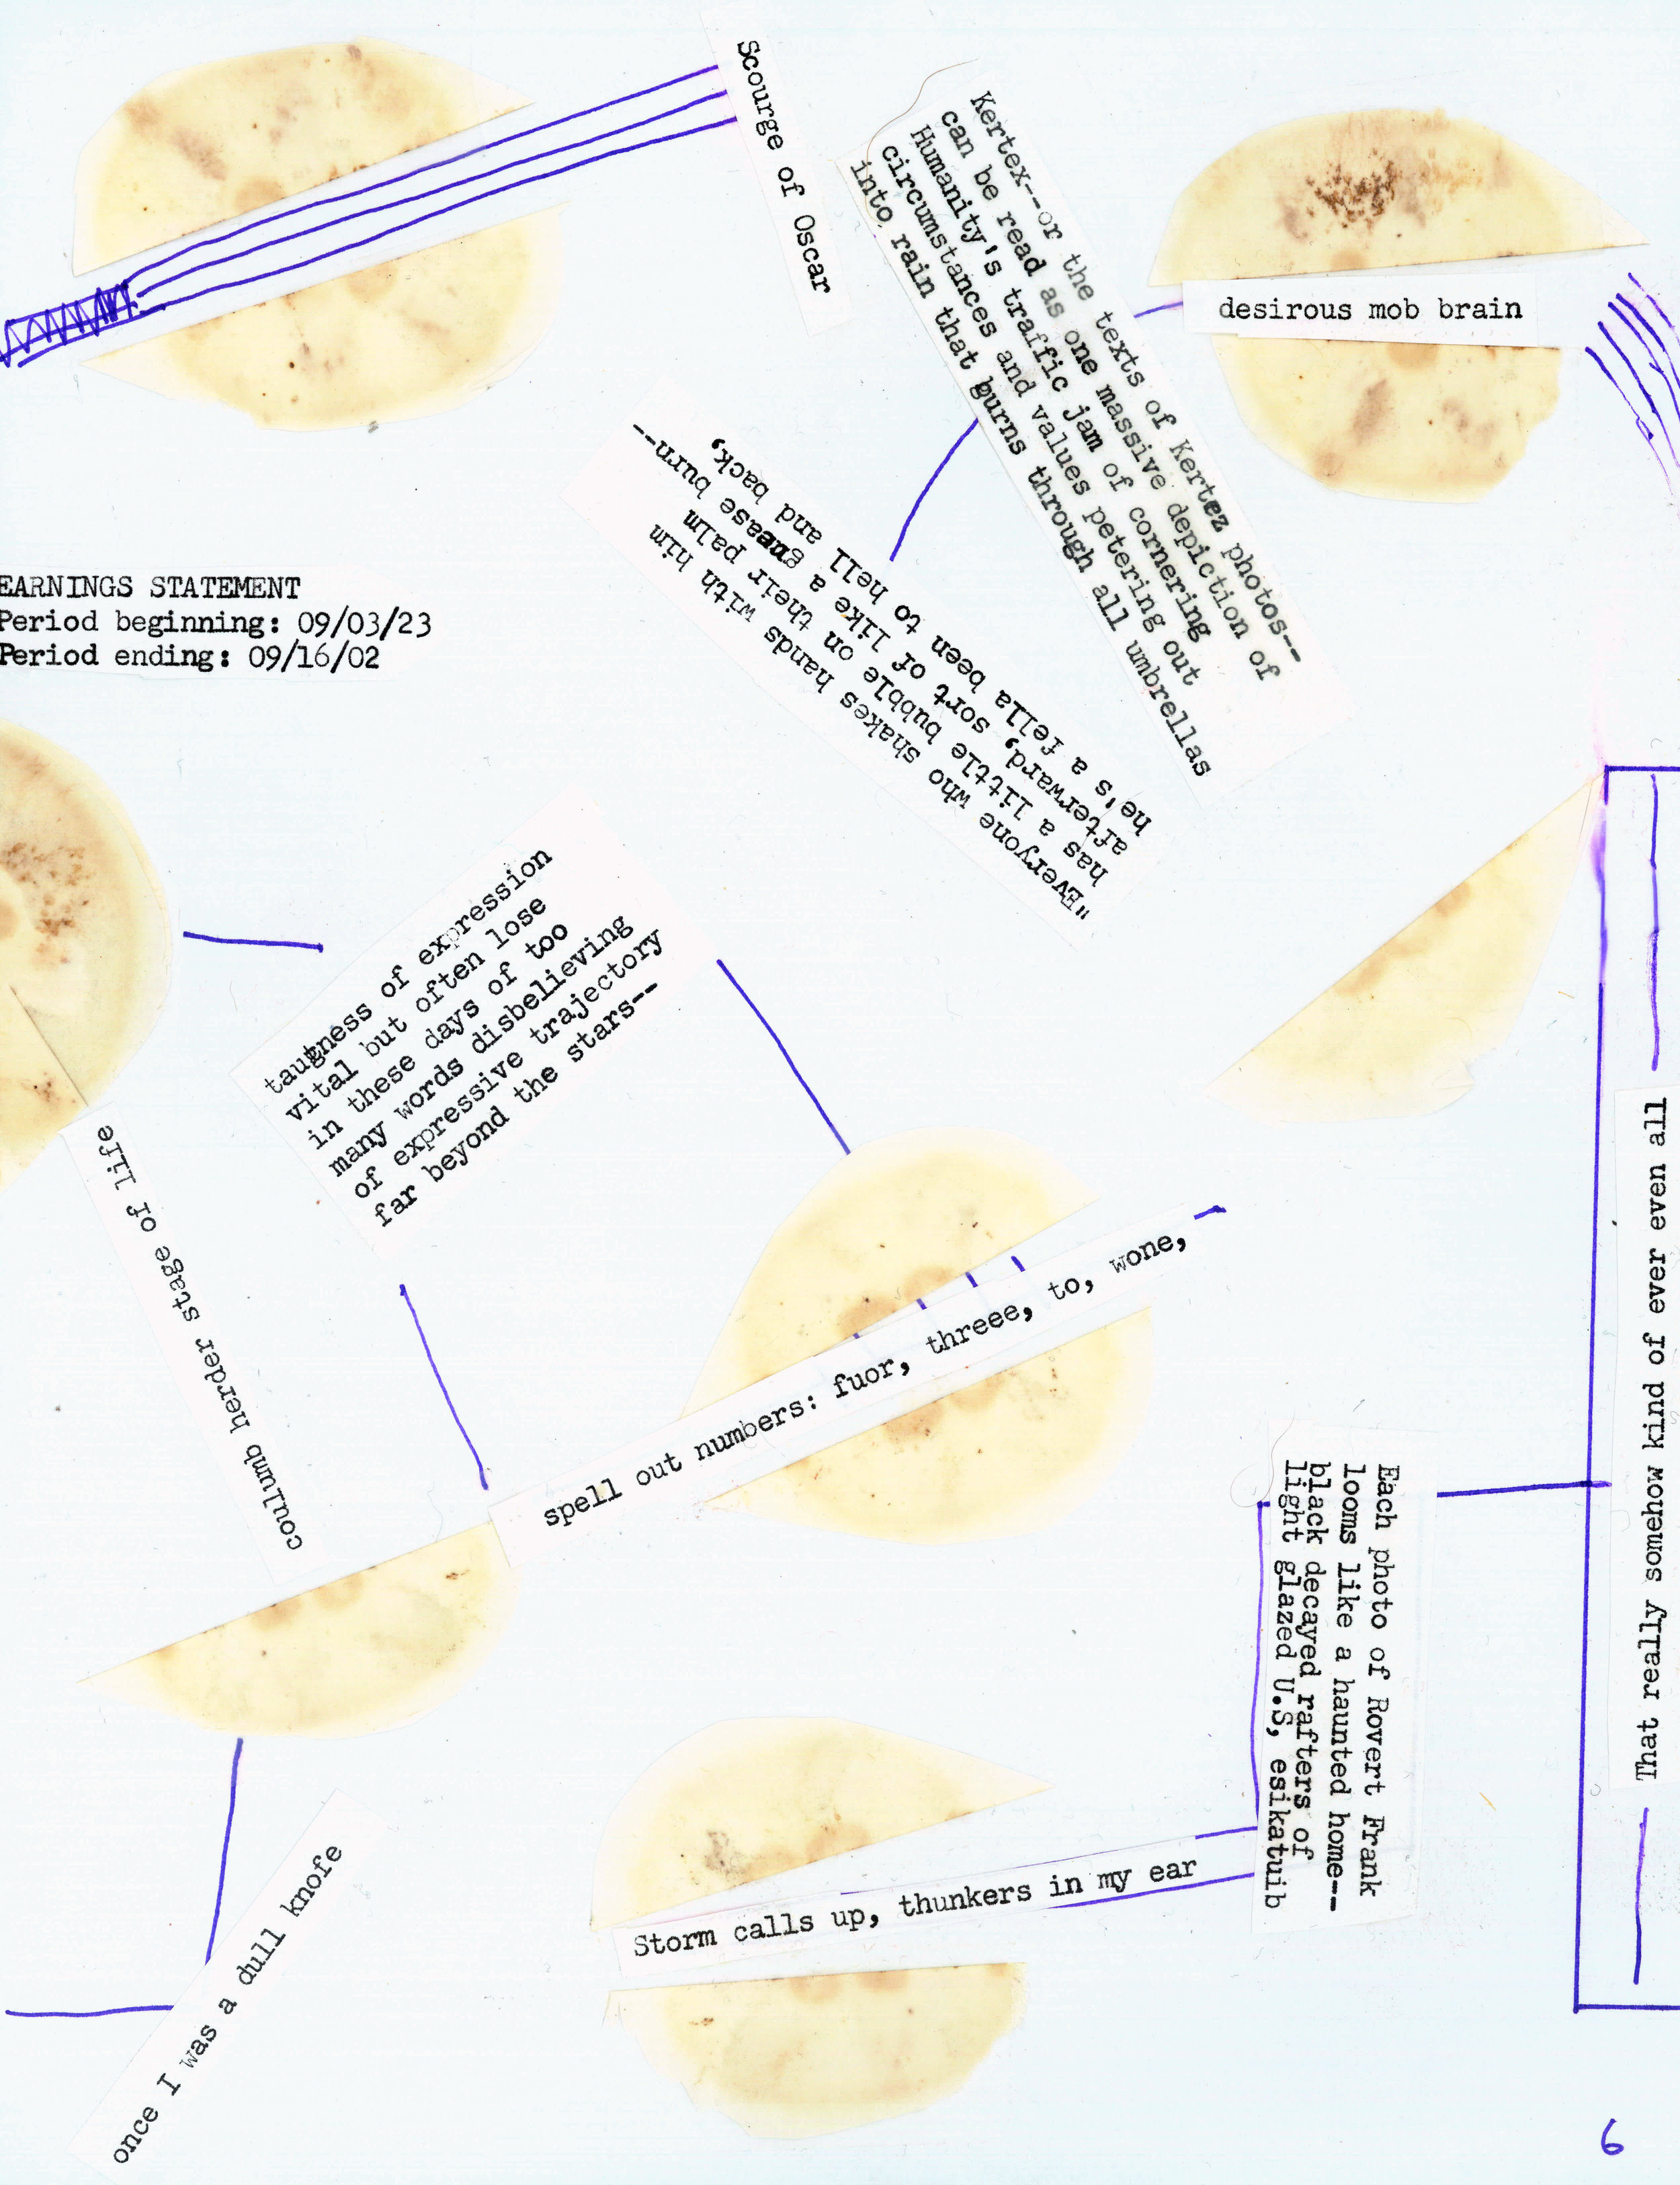 Scourge of Oscar
Kertex--or the texts of Kertez photos--
can be read as one massive depiction of
Humanity's traffic jam of cornering
circumstances and values petering out
into rain that burns through all umbrellas
desirous mob brain
"Everyone who shakes hands with him
has a little bubble on their palm
afterward, sort of like a grease burn--
he's a fella been to hell and back,
EARNINGS STATEMENT
Period beginning: 09/03/23
Period ending: 09/16/02
tautness of expression
vital but often lose
in these days of too
many words disbelieving
of expressive trajectory
far beyond the stars--
coulumb herder stage of life
spell out numbers: fuor, threee, to, wone,
That really somehow kind of ever even all
Each photo of Rovert Frank
looms like a haunted home--
black decayed rafters of
light glazed U.S, esikatuib
Storm calls up, thunkers in my ear
once I was a dull knofe
6